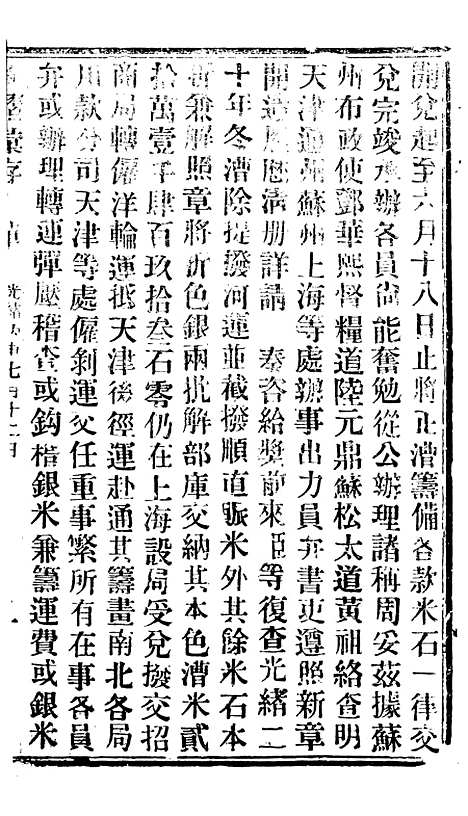 開兌起至六月十八日止將正漕籌備各款米石一律交
兌完竣承辦各員尙能奮勉從公辦理諸稱周妥茲據蘇
州布政使鄧華熙督糧道陸元鼎蘇松太道黃祖絡查明
天津通州蘇州上海等處辦事出力員弁書吏遵照新章
開造履歷淸册詳請　奏咨給獎前來臣等復查光緒二
十年冬漕除提撥河運並截撥順直賑米外其餘米石本
折兼解照章將折色銀兩批解部庫交納其本色漕米貳
拾萬壹千肆百玖拾叁石零仍在上海設局受兌撥交招
商局轉僱洋輪運抵天津後徑運赴通其籌畫南北各局
用款分司天津等處僱剝運交任重事繁所有在事各員
弁或辦理轉運彈壓稽查或鈎稽銀米兼籌運費或銀米
彙存　　光緒　　年七月十二日